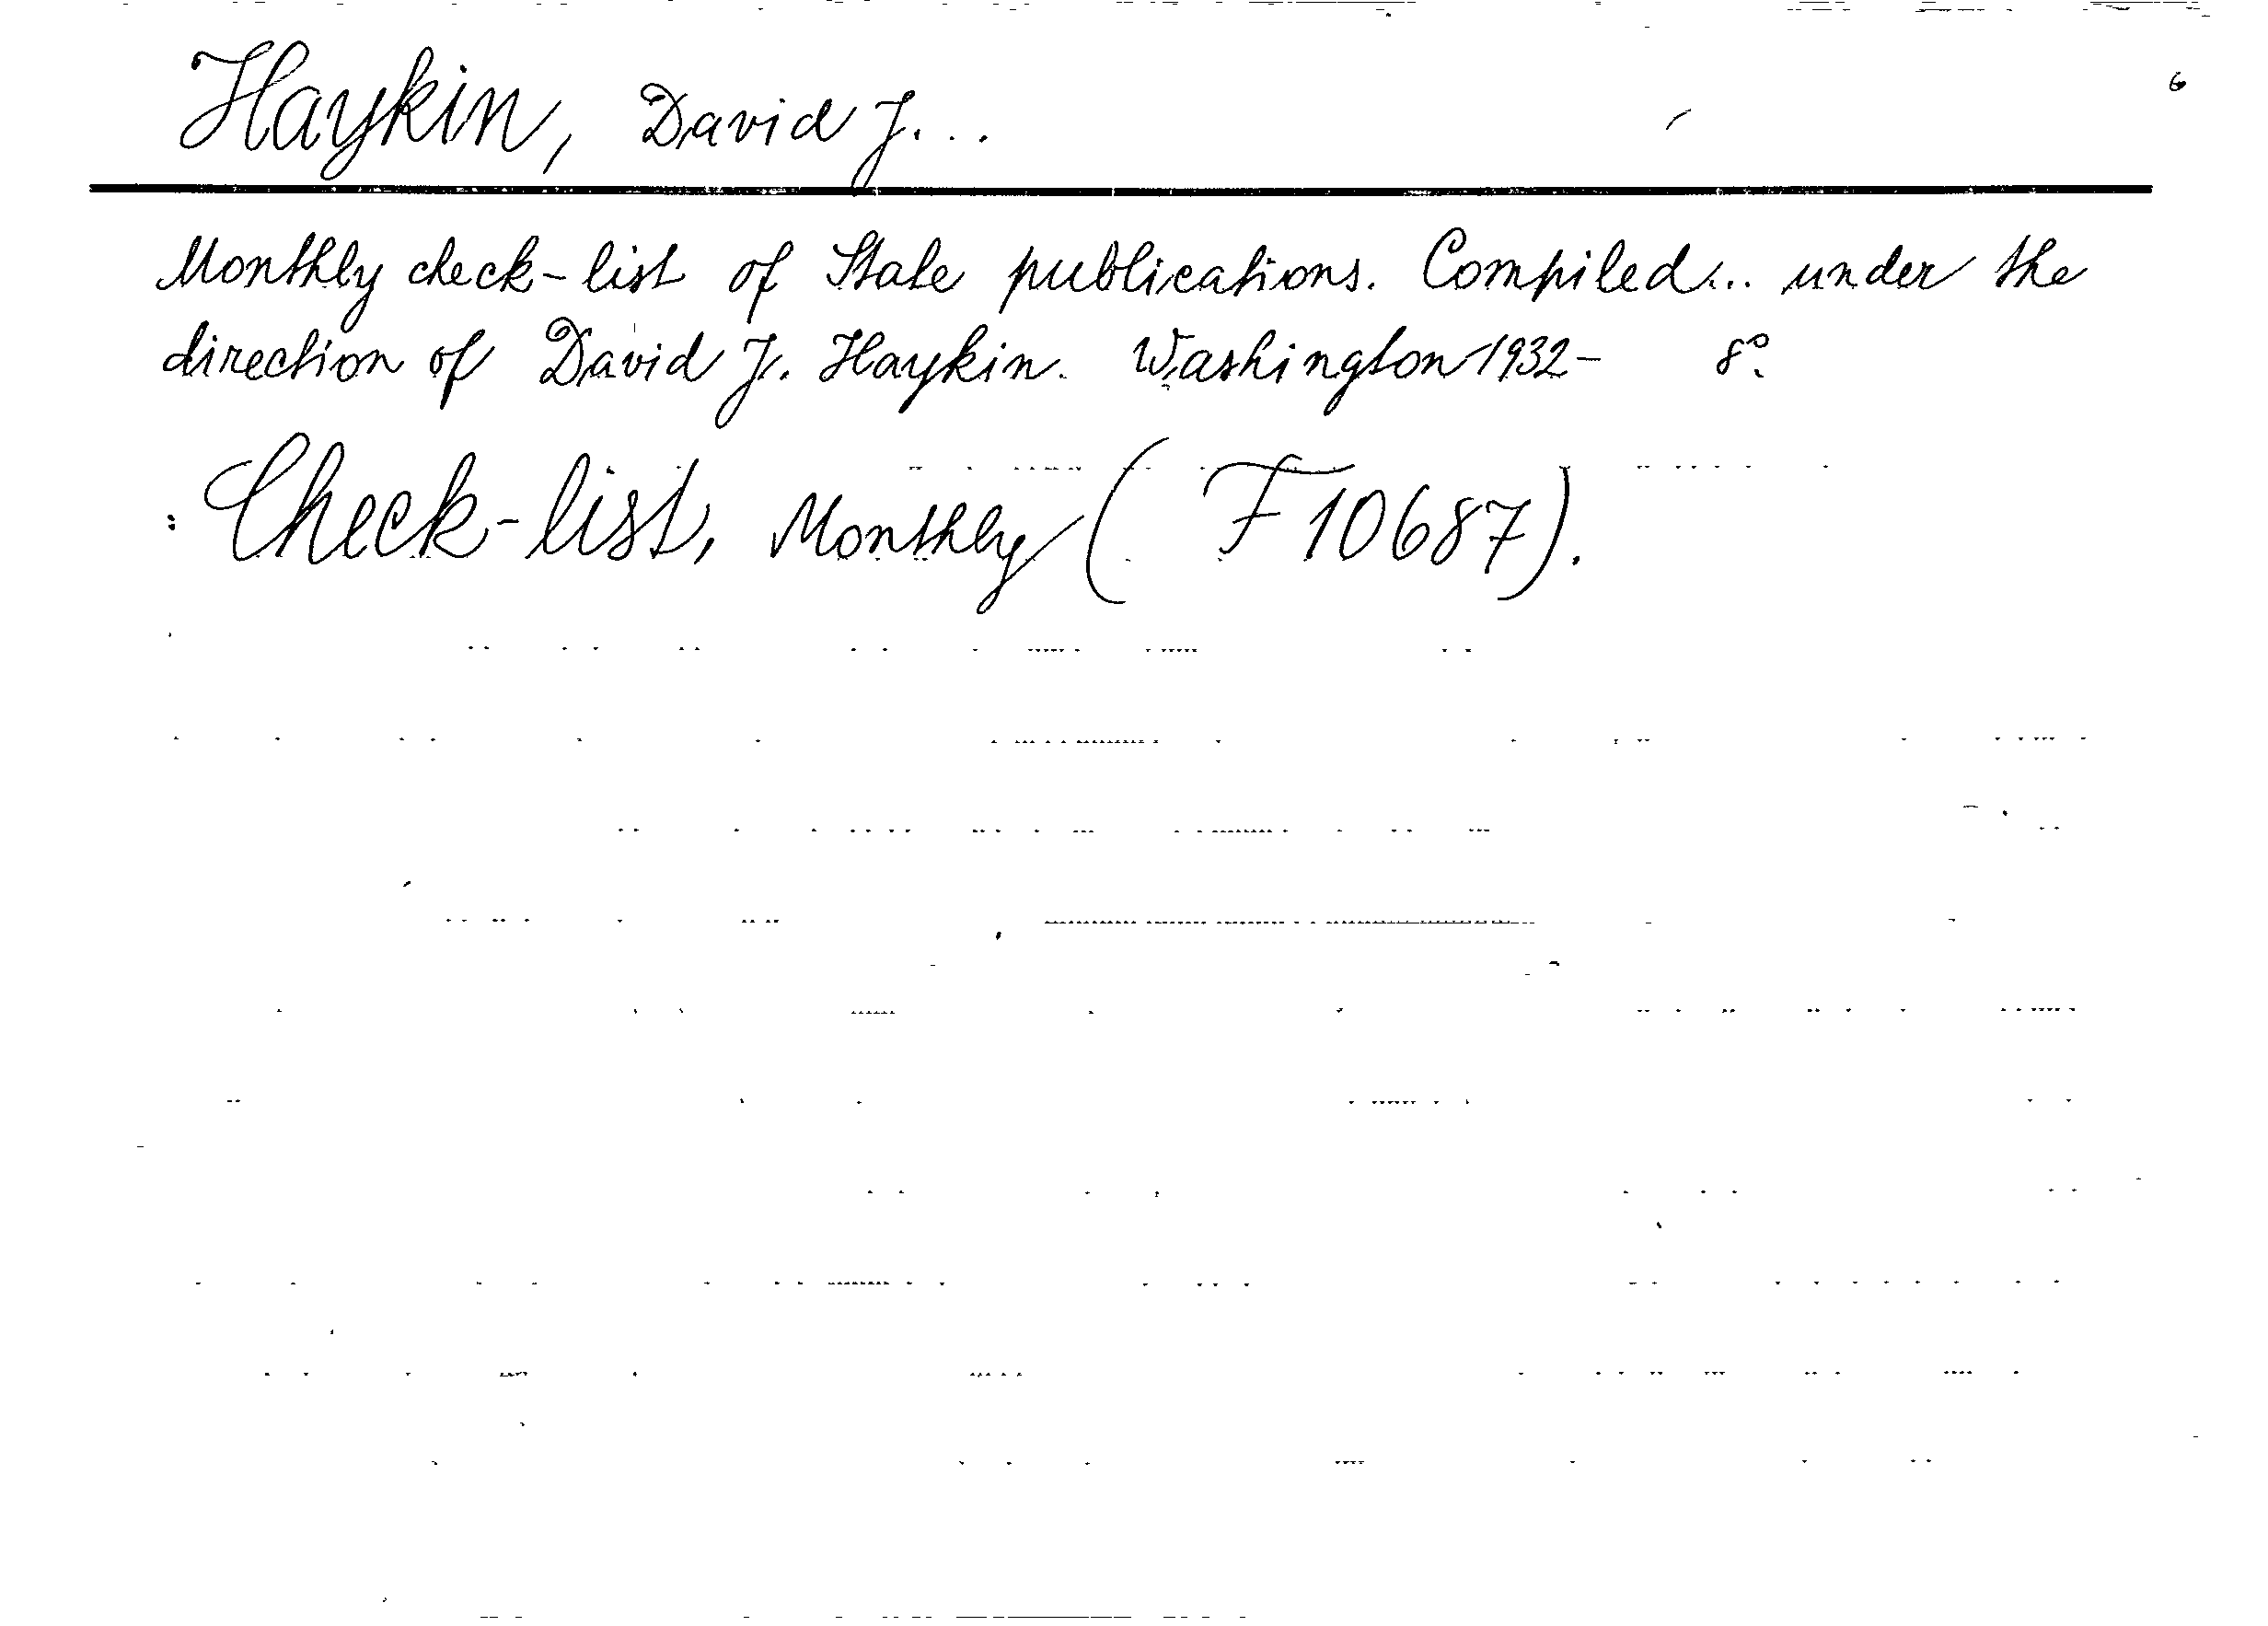 Haykin, David J...
6
Monthly check-list of State publications. Compiled... under the
direction of David J. Haykin. Washington 1932- 8°.
: Check-list, Monthly (F 10687).